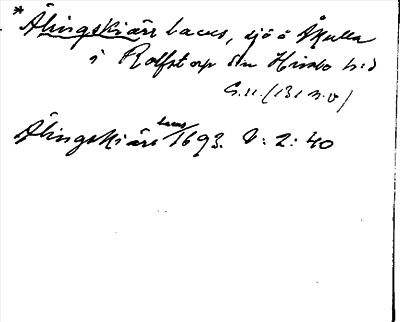 * Ålingskiärr lacus, sjö å Åkulla
i Rolfstorp sn Himle h:d
S.11. (131 n.v)
Ålingskiärr lacus 1693. V: 2: 40